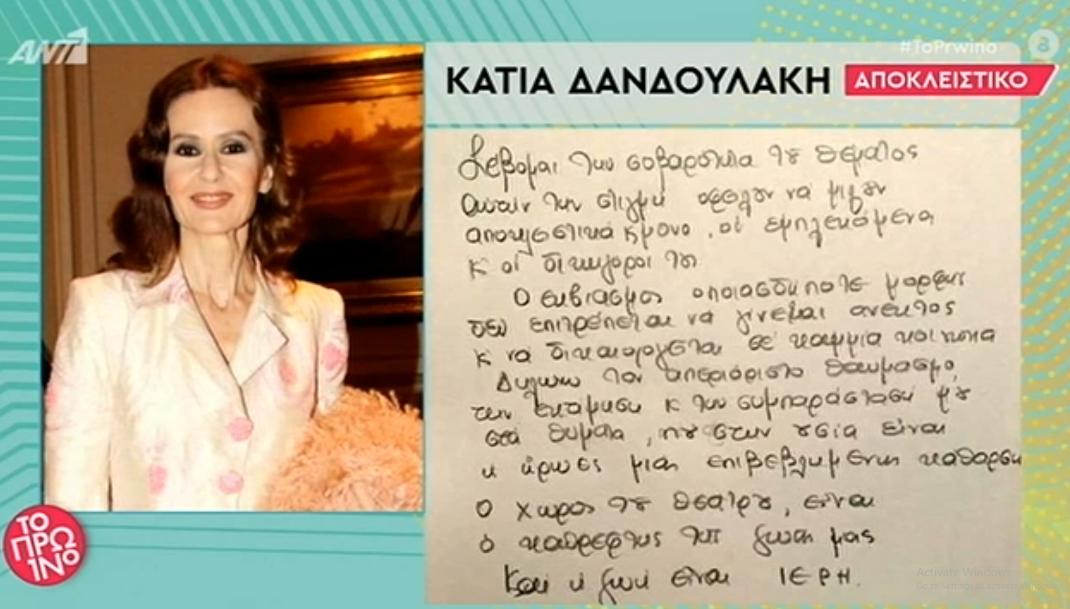 ΑΝΤ1
#ToPrwino
8
ΚΑΤΙΑ ΔΑΝΔΟΥΛΑΚΗ ΑΠΟΚΛΕΙΣΤΙΚΟ
Σέβομαι την σοβαρότητα τȣ θέματος
Αυτήν την στιγμή οφείλουν να μιλȣν
αποκλειστικά κ μόνο, οι εμπλεκόμενοι
κ οι δικηγόροι τȣς
Ο εκβιασμός οποιασδήποτε μορφής
δεν επιτρέπεται να γίνεται ανεκτός
κ να δικαιολογείται σε καμμία κοινωνία
Δηλώνω τον απεριόριστο θαυμασμό,
την εκτίμηση κ την συμπαράστασή μȣ
στα θύματα, πȣ στην ȣσία είναι
κ ήρωες μιας επιβεβλημένης κάθαρσης
Ο χώρος τȣ θεάτρȣ, είναι
ο καθρέφτης της ζωής μας
Και η ζωή είναι ΙΕΡΗ.
ΤΟ
ΠΡΩ
ΙΝΟ
Activate Windows